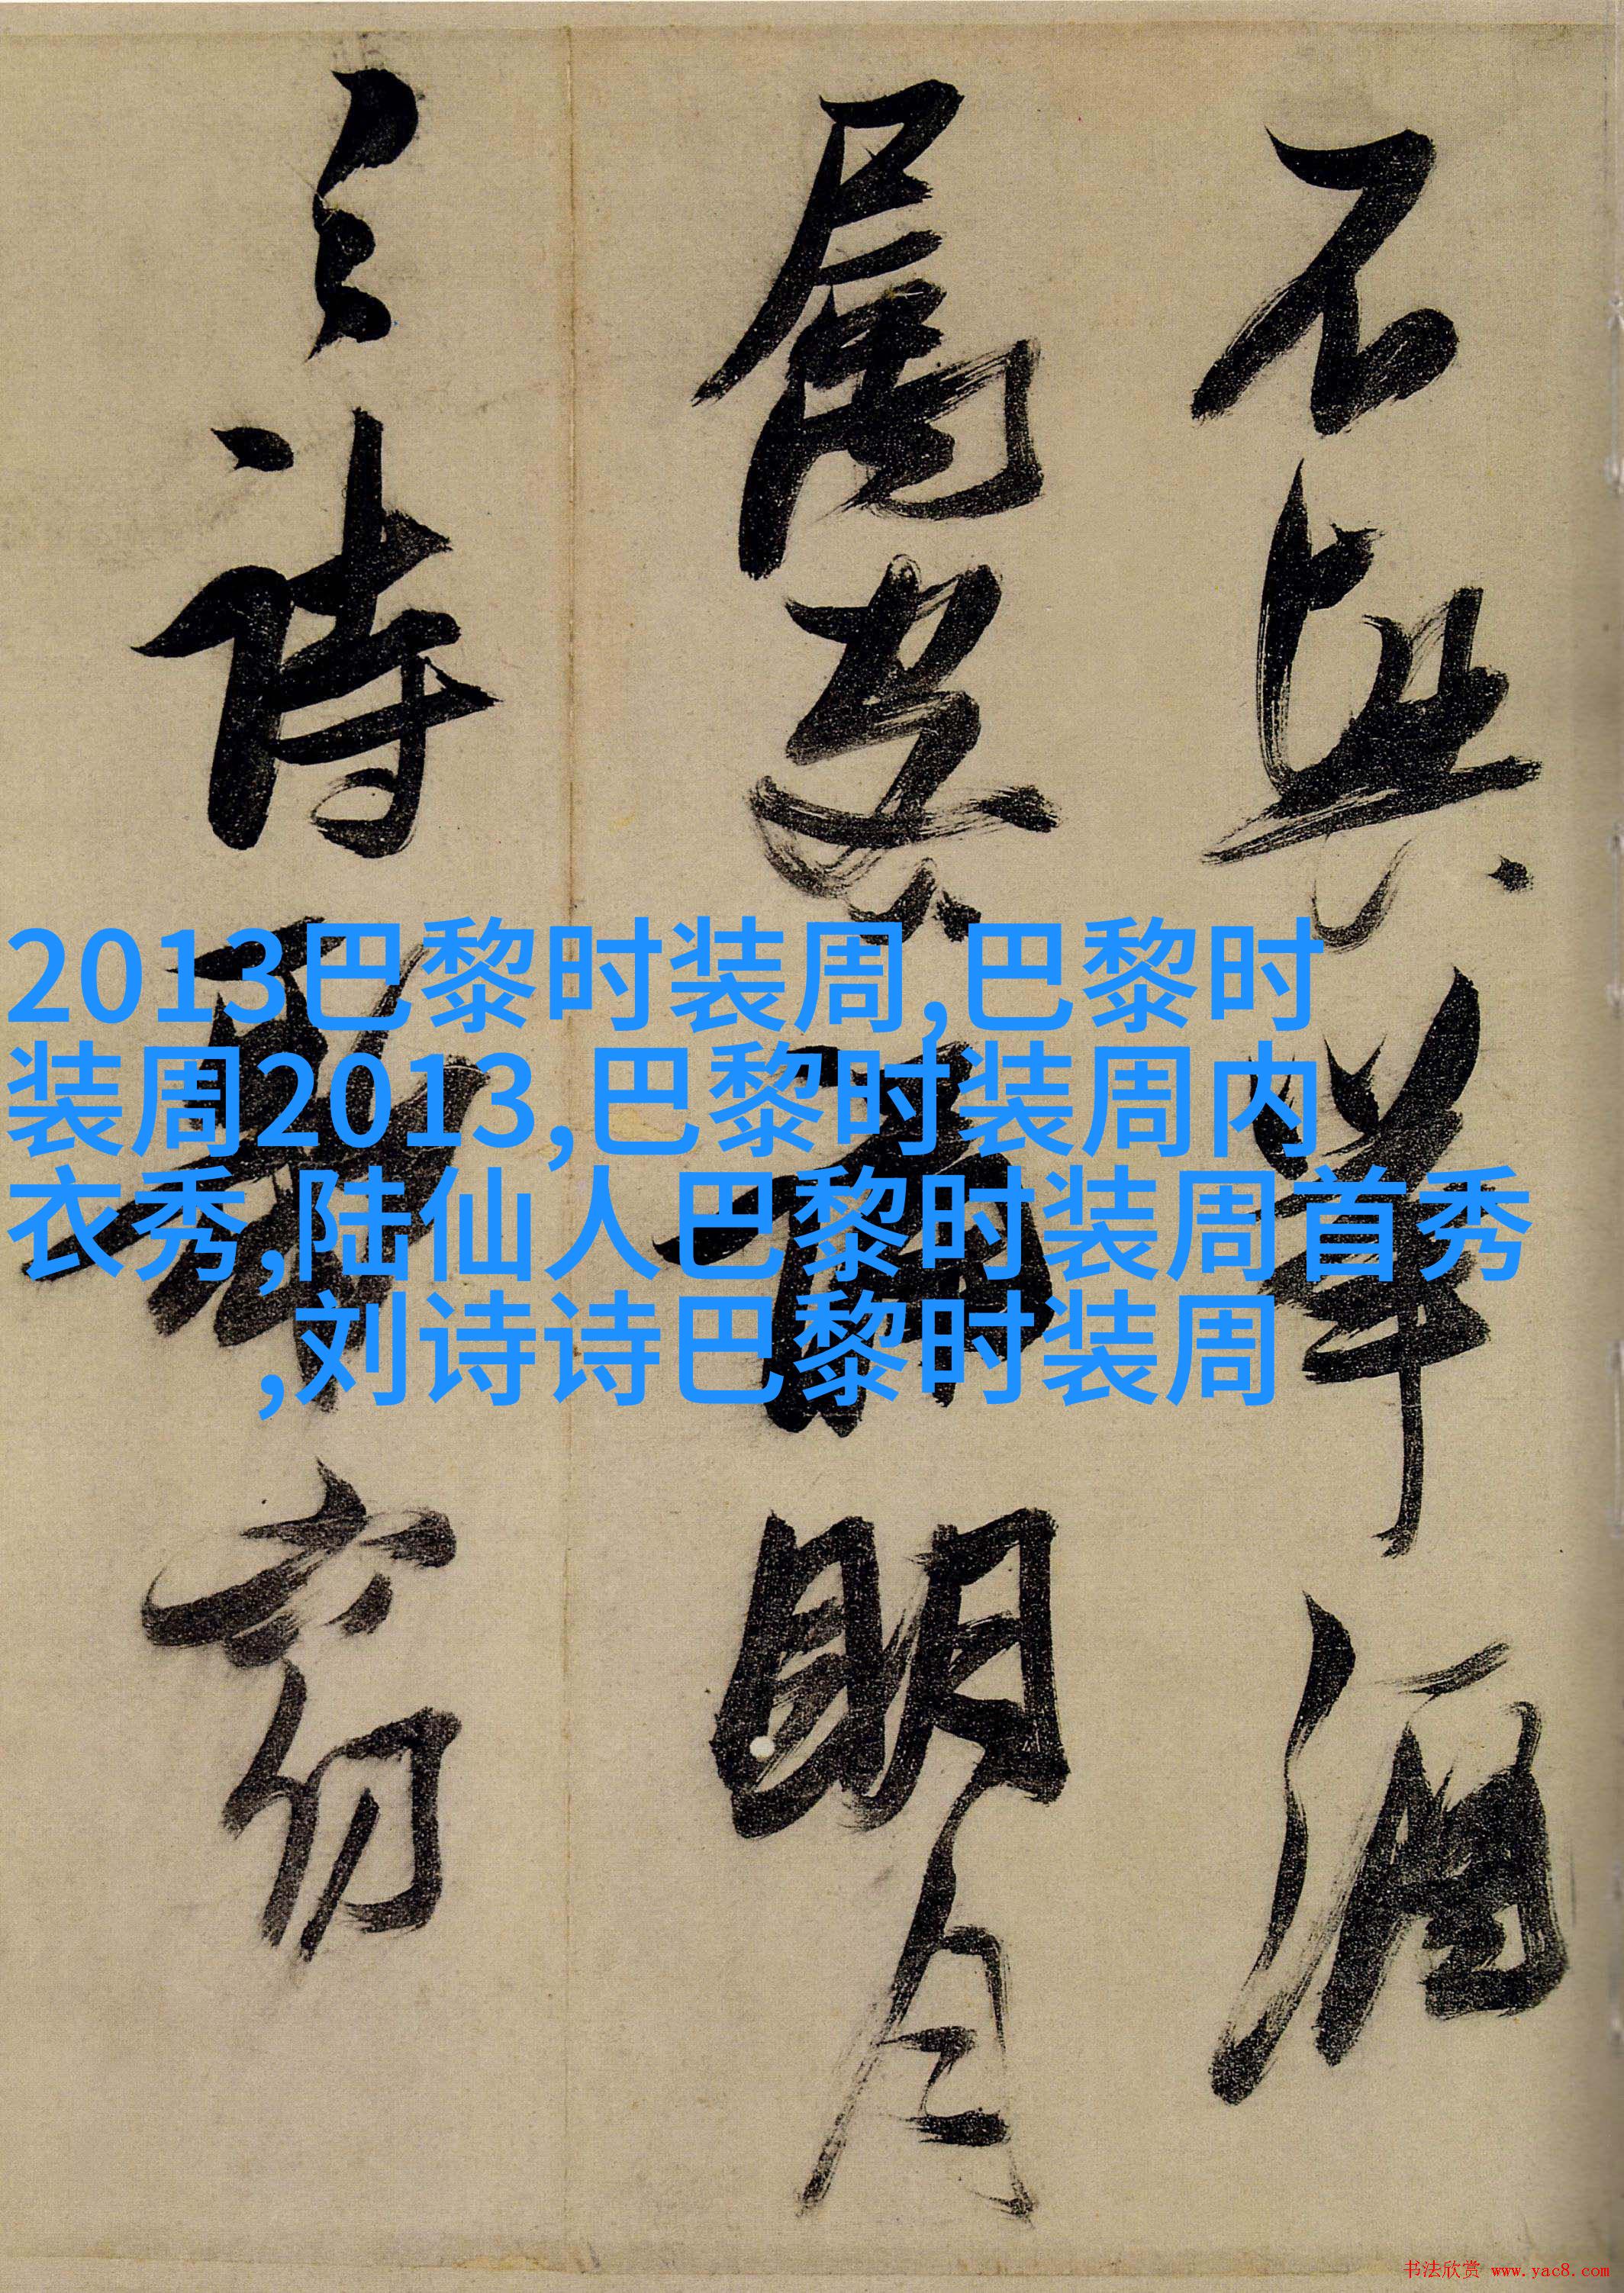 不興舉酒
屬客誦明月
之詩歌窈
2013巴黎时装周,巴黎时
装周2013,巴黎时装周内
衣秀,陆仙人巴黎时装周首秀
,刘诗诗巴黎时装周
书法欣赏 www.yac8.com